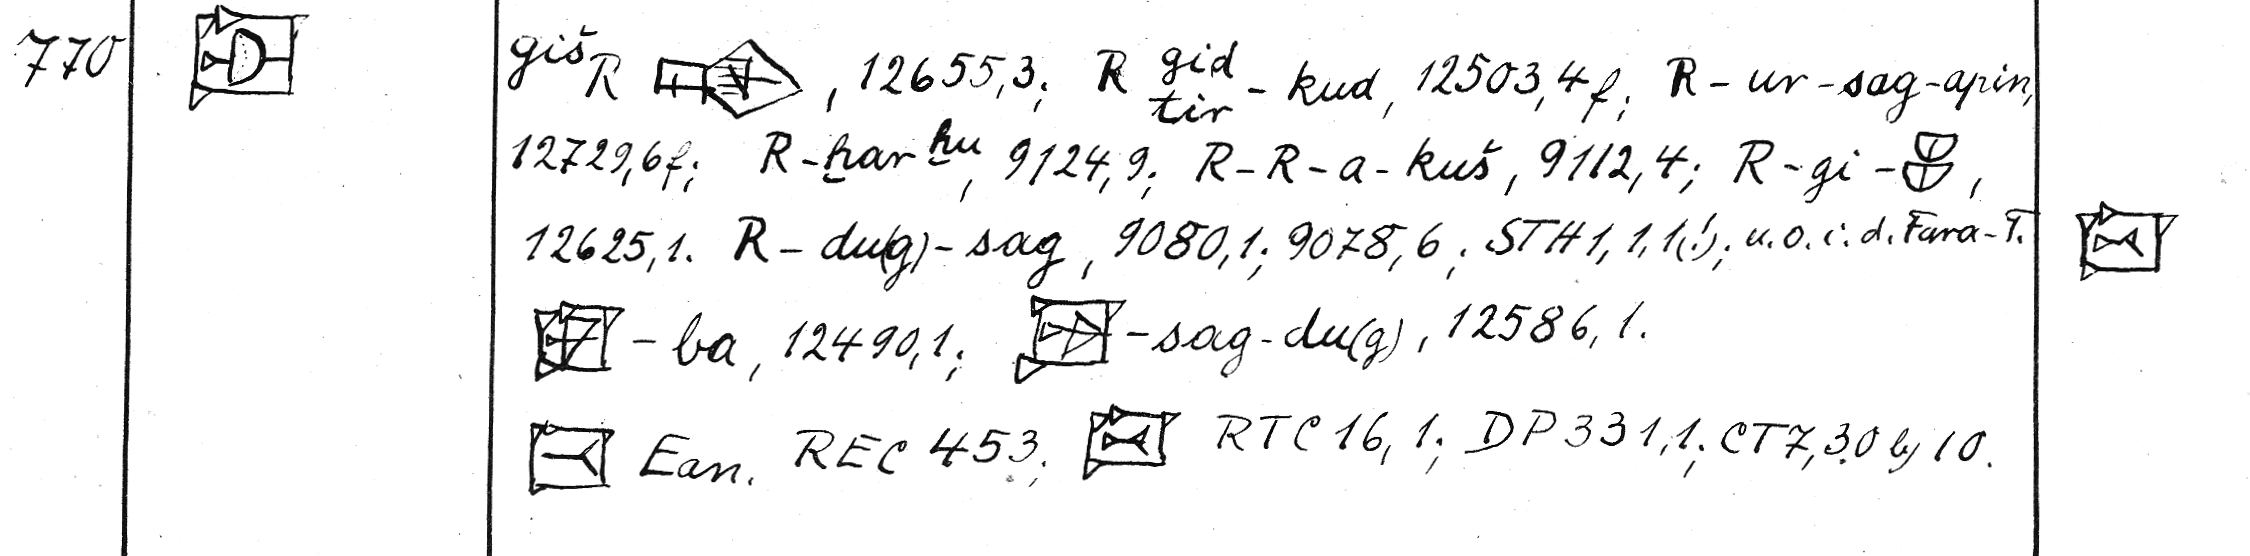 770 gišR , 12655,3; R gid tir - kud, 12503,4f; R-ur-sag-apin,
12729,6f; R-ḫar ḫu, 9124,9; R-R-a-kuš, 9112,4; R-gi- ,
12625,1. R-du(g)-sag, 9080,1; 9078,6; STH1,1,1(!); u.o.i.d. Fara-T.
-ba, 12490,1; -sag-du(g), 12586,1.
Ean. REC 453; RTC 16,1; DP 331,1; CT7,30 b, 10.